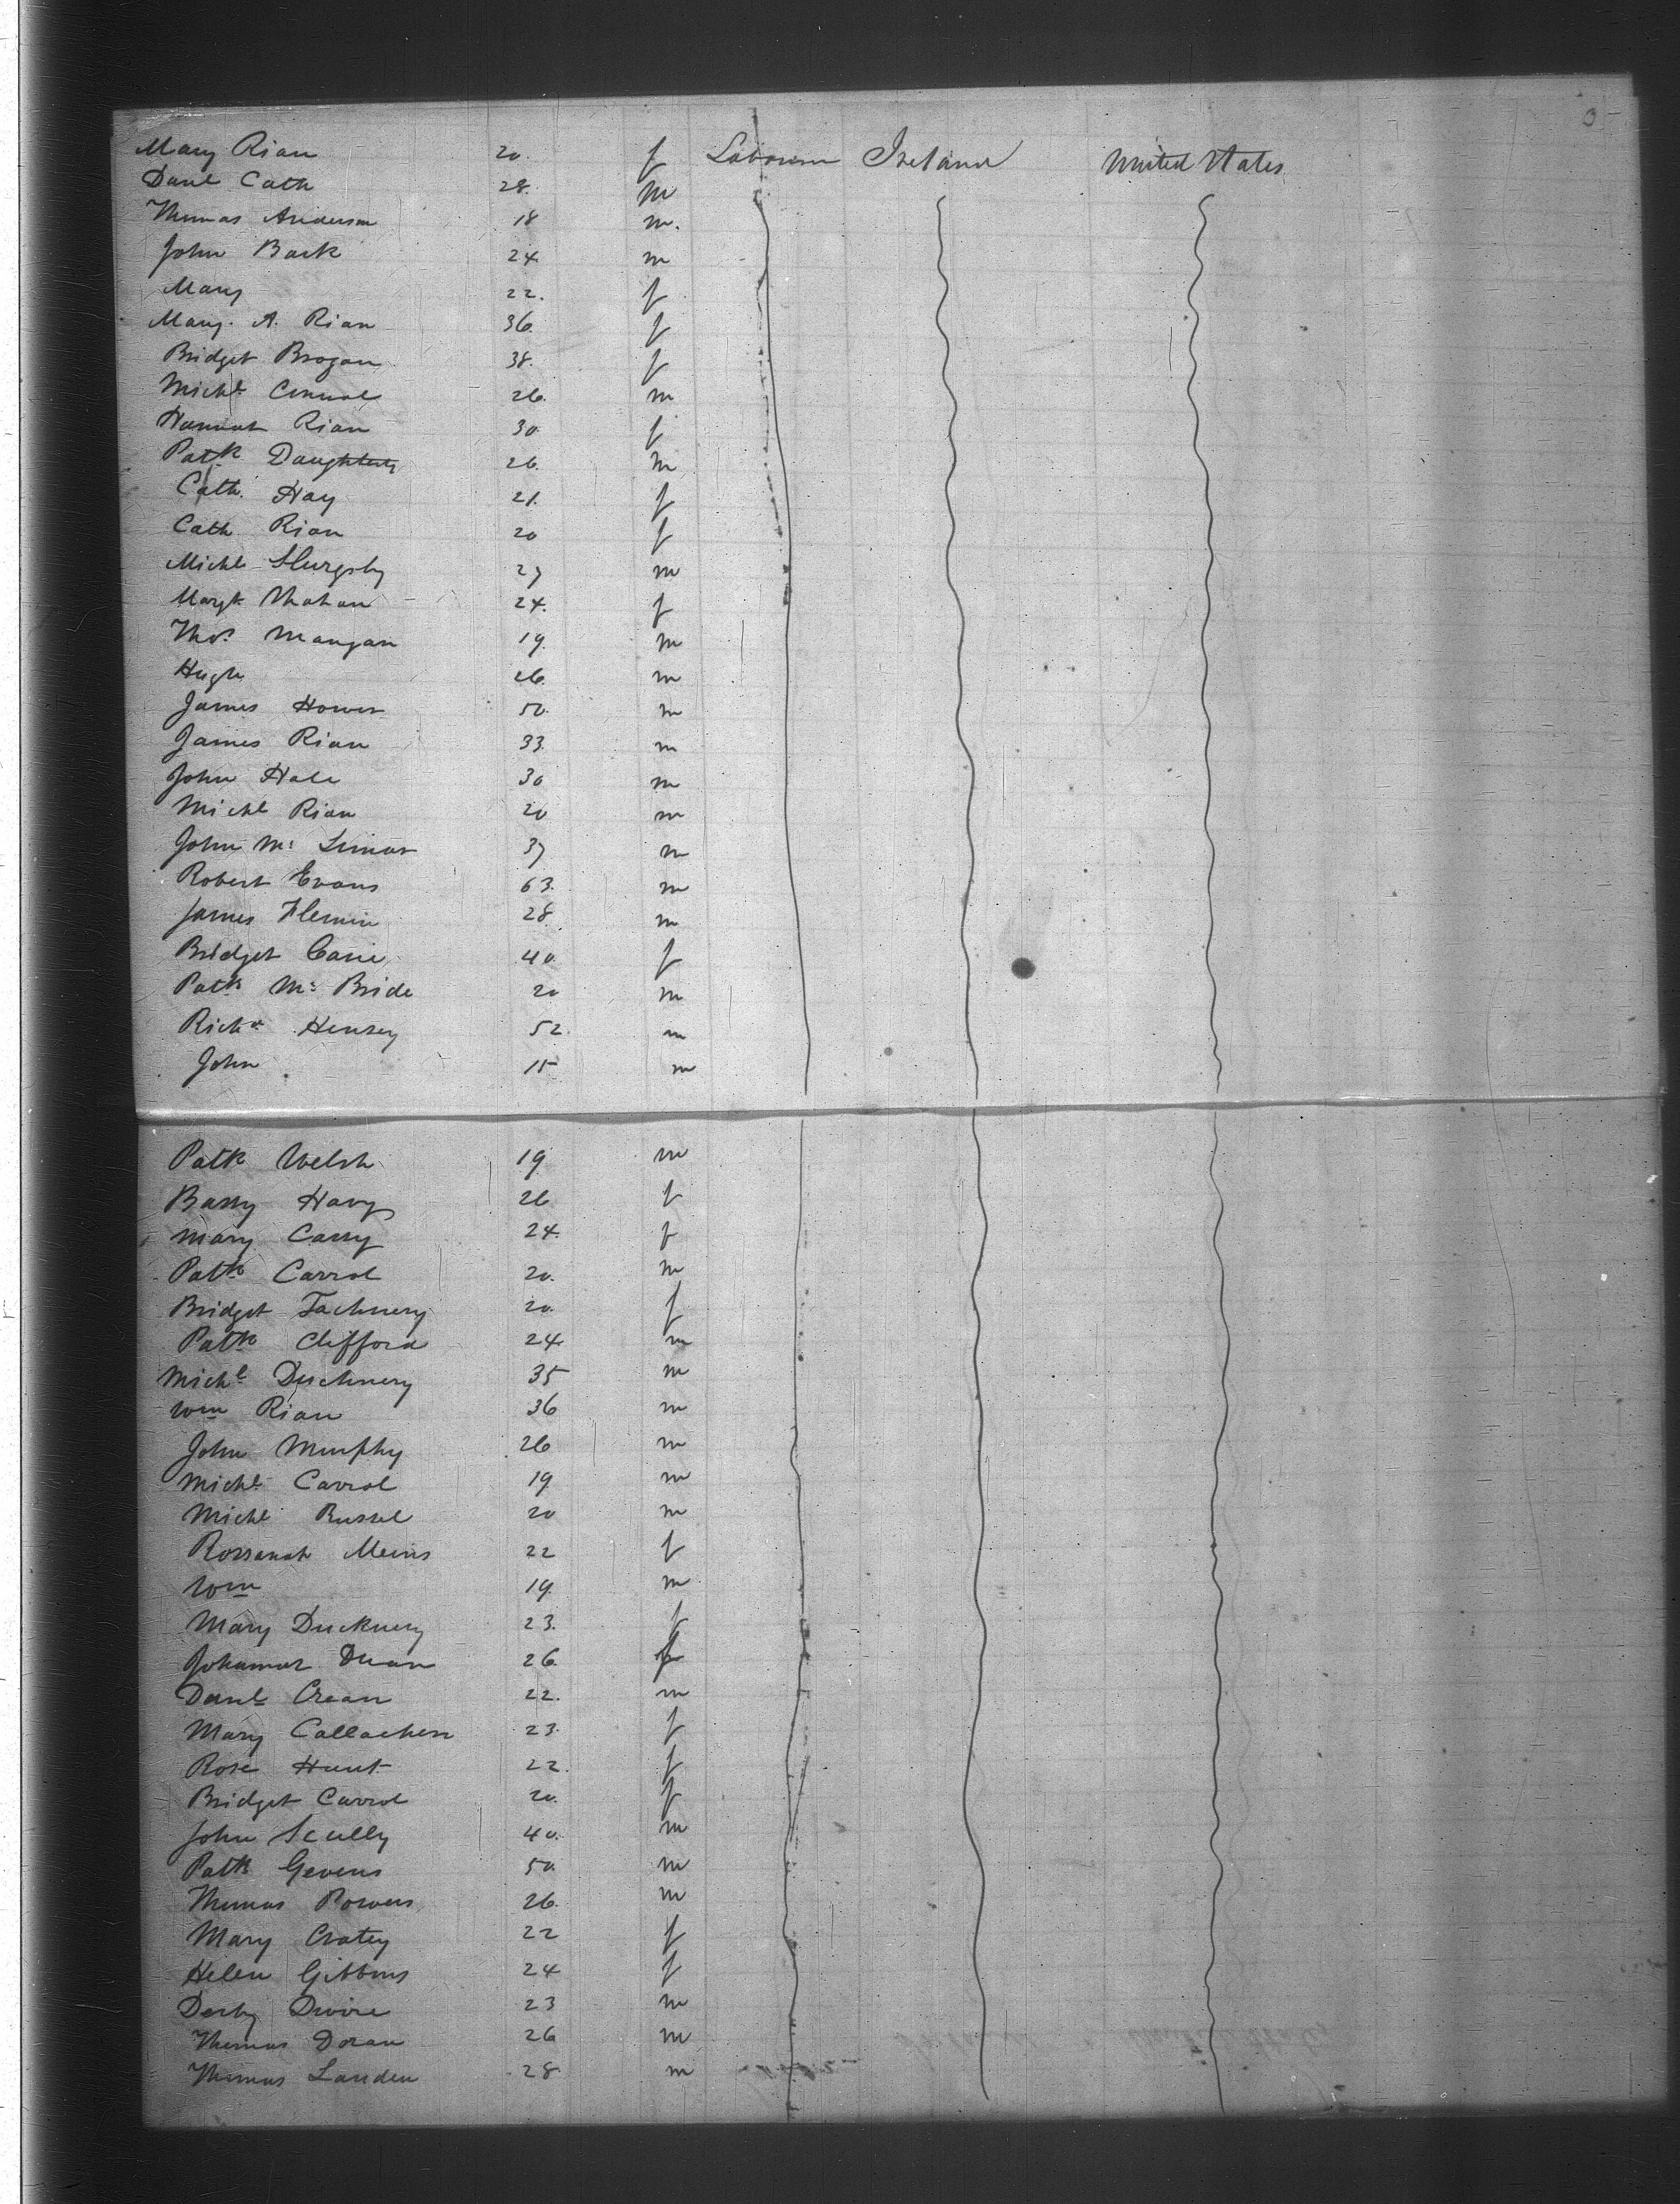 Mary Rian 20 f Labourer Ireland United States
Danl Cath 28 m
Thomas Anderson 18 m.
John Bark 24 m
Mary 22. f
Mary. A. Rian 36. f
Bridget Brogan 38. f
Michl Connol 26. m
Hannah Rian 30 f
Patk Daughterty 26. m
Cath. Hay 21. f
Cath Rian 20 f
Michl Slurgsby 27 m
Margt Mahan 24. f
Thos. Mangan 19. m
Hugh 26. m
James Hower 50. m
James Rian 33. m
John Hale 30 m
Michl Rian 20 m
John Mc 37 m
Robert Evans 63. m
James Flemin 28. m
Bridget Carie 40. f
Patk Mc Bride 20 m
Richd Hensey 52. m
John 15 m
Patk Welsh 19 m
26 f
Mary Carry 24. f
Patk Carrol 20. m
Bridget Tachnery 20. f
Patk Clifford 24 m
Michl Duchnery 35 m
Wm Rian 36 m
John Murphy 26 m
Michl Carrol 19 m
Michl Russel 20 m
Rossanah 22 f
Wm 19. m
Mary Ducknery 23. f
26. f
Danl Crean 22. m
Mary Callachen 23. f
Rose Hunt 22. f
Bridget Carrol 20. f
John Scully 40. m
Patk Gevens 50. m
Thomas Powers 26. m
Mary Cratey 22 f
Helen Gibbons 24 f
Derby Dwire 23 m
Thomas Doran 26 m
Thomas Landen 28 m